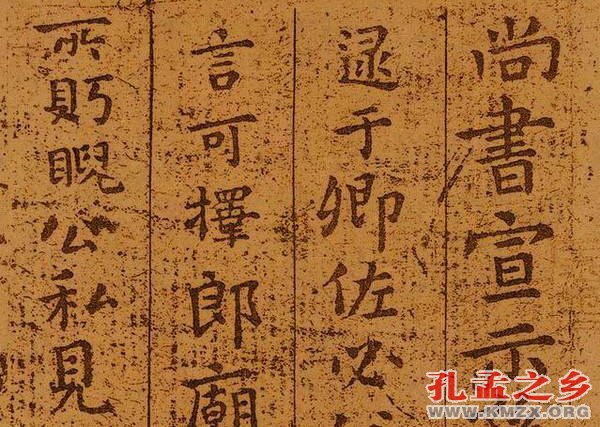 尚書宣示
逮于卿佐必
言可擇郎廟
所睨公私見
孔孟之乡
WWW.KMZX.ORG